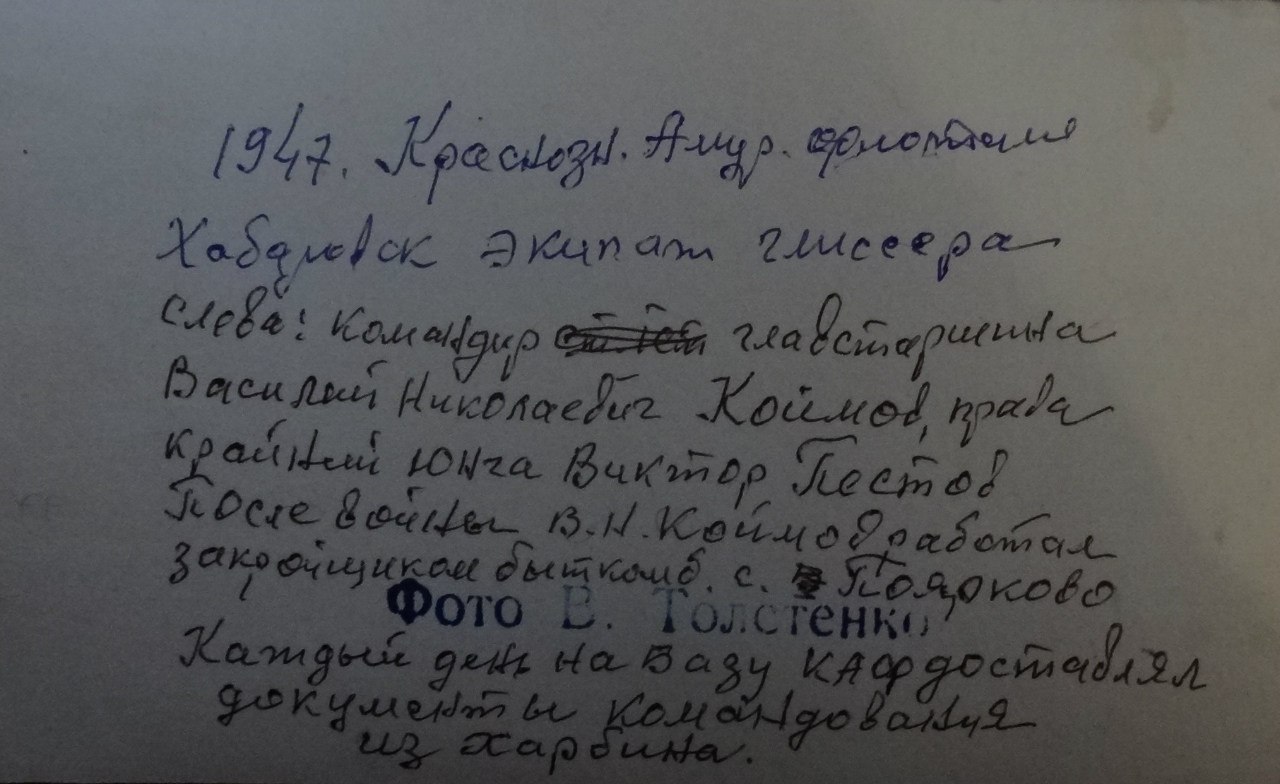 1947. Краснозн. Амур. флотилия
Хабаровск экипаж глиссера
слева: командир главстаршина
Василий Николаевич Коймов, права
крайний юнга Виктор Пестов
После войны В.Н. Коймов работал
закройщиком быткомб. с. Поярково
Фото В. Толстенко
Каждый день на Базу КАФ доставлял
документы командования
из Харбина.